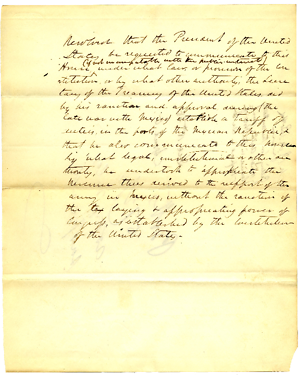 Resolved that the President of the United
States, be requested to communicate to this
(if not incompatible with the public interest)
House under what law or provision of the Con
stitution, or by what other authority, the Secre
tary of the Treasury of the United States, did
by his sanction and approval during (the
late war with Mexico) establish a tariff of
duties in the ports of the Mexican Republic;
that he also communicate to this house
by what legal, constitutional or other au
thority, he undertook to appropriate the
Revenue thus derived to the support of the
army in Mexico, without the sanction of
the tax laying & appropriating power of
Congress, as established by the Constitution
of the United States.